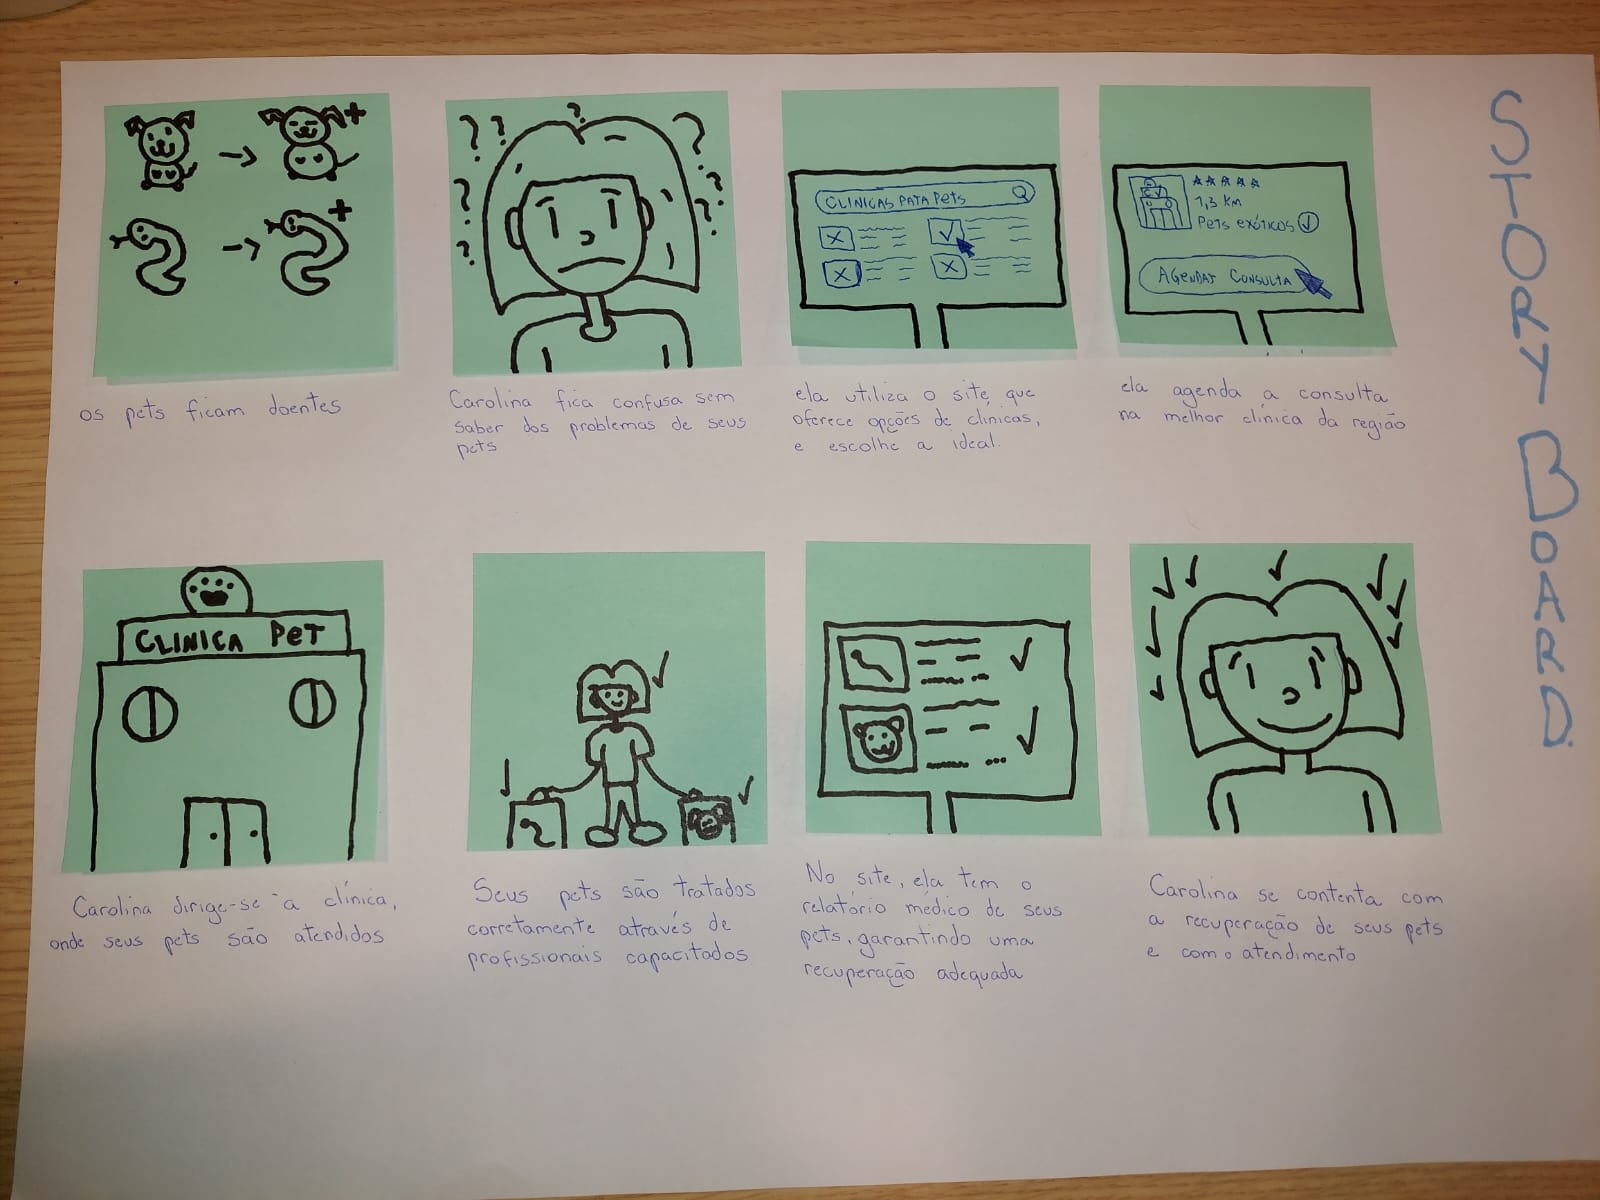 STORY BOARD.
os pets ficam doentes
Carolina fica confusa sem
saber dos problemas de seus
pets
CLINICAS PATA PETS
ela utiliza o site que
oferece opções de clínicas,
e escolhe a ideal.
1,3 KM
Pets exóticos
AGENDAR CONSULTA
ela agenda a consulta
na melhor clínica da região
CLINICA PET
Carolina dirige-se à clínica,
onde seus pets são atendidos
Seus pets são tratados
corretamente através de
profissionais capacitados
No site, ela tem o
relatório médico de seus
pets, garantindo uma
recuperação adequada
Carolina se contenta com
a recuperação de seus pets
e com o atendimento